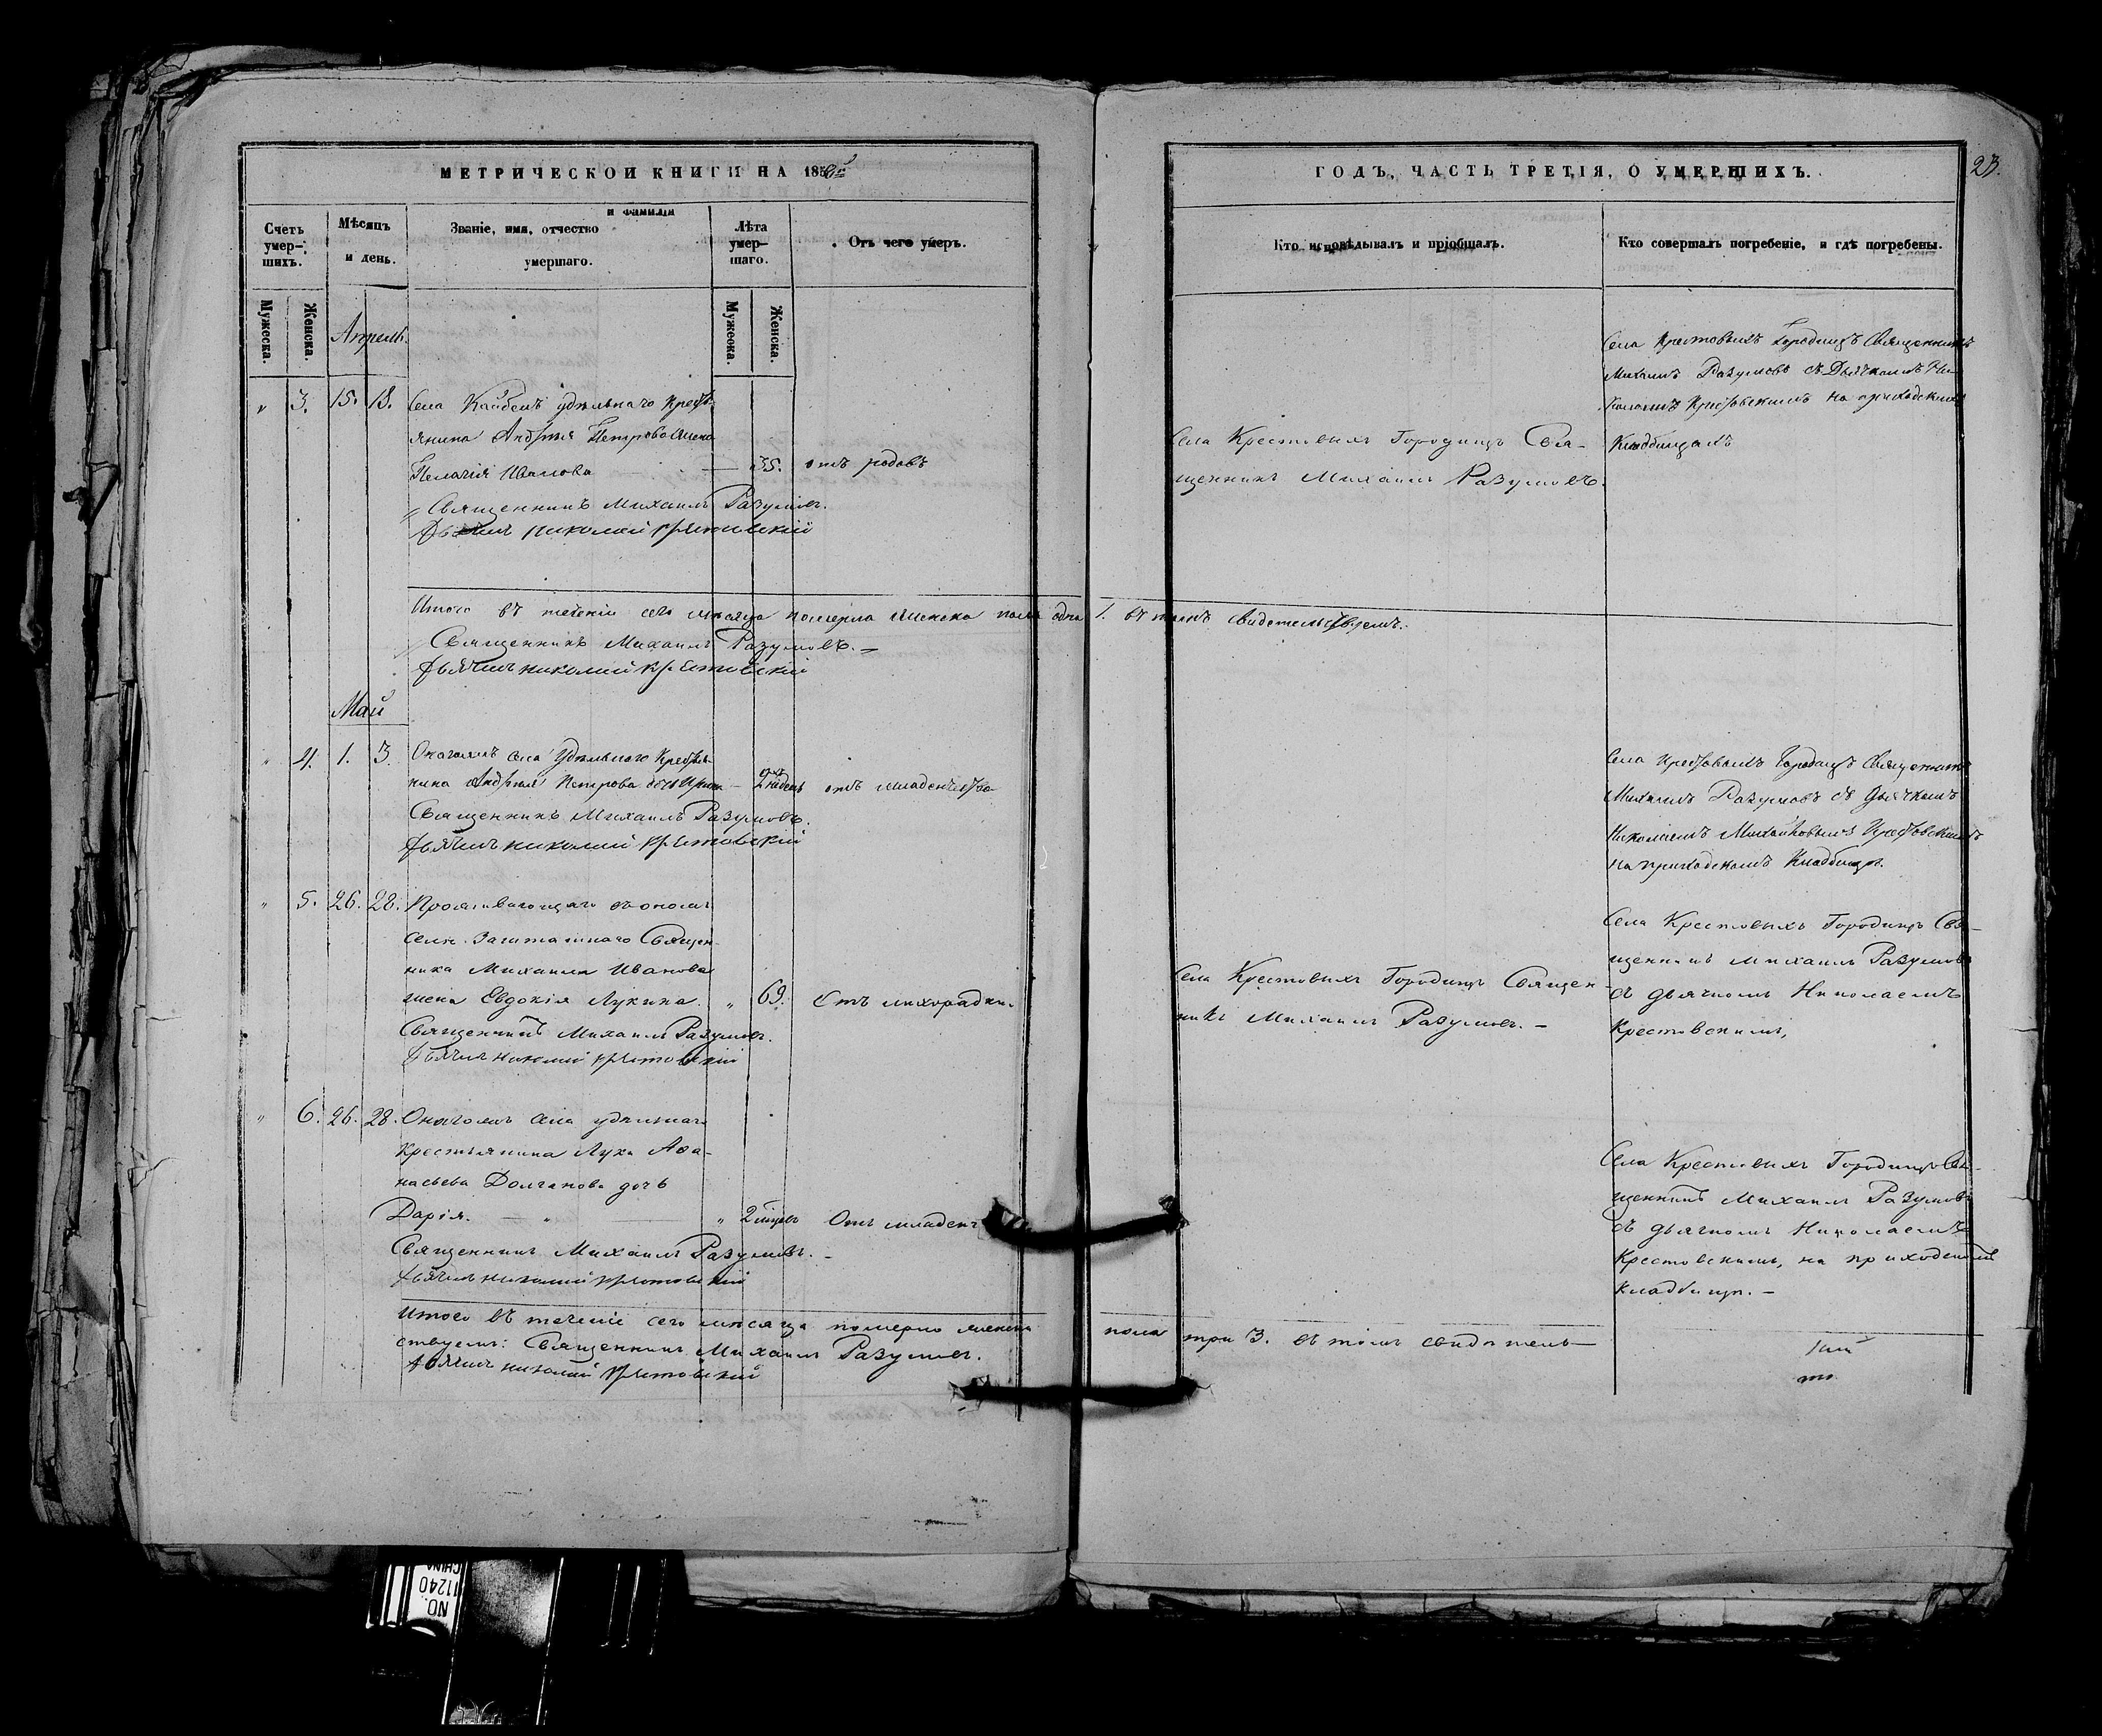 МЕТРИЧЕСКОЙ КНИГИ НА 185
ГОДЪ, ЧАСТЬ ТРЕТІЯ, О УМЕРШИХЪ.
23.
Счетъ умер-шихъ.
Мѣсяцъ и день.
и фамилія
Званіе, имя, отчество умершаго.
Лѣта умер-шаго.
Отъ чего умеръ.
Кто исповѣдывалъ и пріобщалъ.
Кто совершалъ погребеніе, и гдѣ погребены.
Мужеска.
Женска.
Мужеска.
Женска.
Апрель.
„ 3. 15. 18. Села Кайбелъ удѣльнаго Кресть-
янина Андрея Петрова жена
Пелагія Иванова — 35. отъ родовъ
Священникъ Михаилъ Разумовъ.
Дьячекъ Николай Крестовскій
Села Крестовыхъ Городищъ Свя-
щенникъ Михаилъ Разумовъ.
Села Крестовыхъ Городищъ Священникъ
Михаилъ Разумовъ съ Дьячкомъ Ни-
колаемъ Крестовскимъ на приходскомъ
Кладбищѣ
Итого въ теченіи сего мѣсяца померла женска пола одна 1. въ томъ свидетельствуемъ.
Священникъ Михаилъ Разумовъ. —
Дьячекъ Николай Крестовскій
Май
„ 4. 1. 3. Онагожъ села Удѣльнаго Крестья-
нина Андрея Петрова дочь — 2 недель отъ младенчества
Священникъ Михаилъ Разумовъ.
Дьячекъ Николай Крестовскій
Села Крестовыхъ Городищъ Священникъ
Михаилъ Разумовъ съ Дьячкомъ
Николаемъ Михайловымъ Крестовскимъ
на приходскомъ Кладбищѣ.
„ 5. 26. 28. Проживающаго въ ономъ
селе Заштатнаго Священ-
ника Михаила Иванова
жена Евдокія Лукина. „ 69. Отъ лихорадки.
Священникъ Михаилъ Разумовъ.
Дьячекъ Николай Крестовскій
Села Крестовыхъ Городищъ Священ-
никъ Михаилъ Разумовъ. —
Села Крестовыхъ Городищъ Свя-
щенникъ Михаилъ Разумовъ
съ дьячкомъ Николаемъ
Крестовскимъ,
„ 6. 26. 28. Онагожъ села удѣльнаго
крестьянина Луки Афа-
насьева Долганова дочь
Дарія. — „ — „ 2 Отъ младен
Священникъ Михаилъ Разумовъ. —
Дьячекъ Николай Крестовскій
Села Крестовыхъ Городищъ Свя-
щенникъ Михаилъ Разумовъ
съ дьячкомъ Николаемъ
Крестовскимъ, на приходскомъ
кладбищѣ. —
Итого въ теченіе сего мѣсяца померло женска пола три 3. въ томъ свидѣтель-
ствуемъ: Священникъ Михаилъ Разумовъ.
Дьячекъ Николай Крестовскій
NO.
11240
CHINA